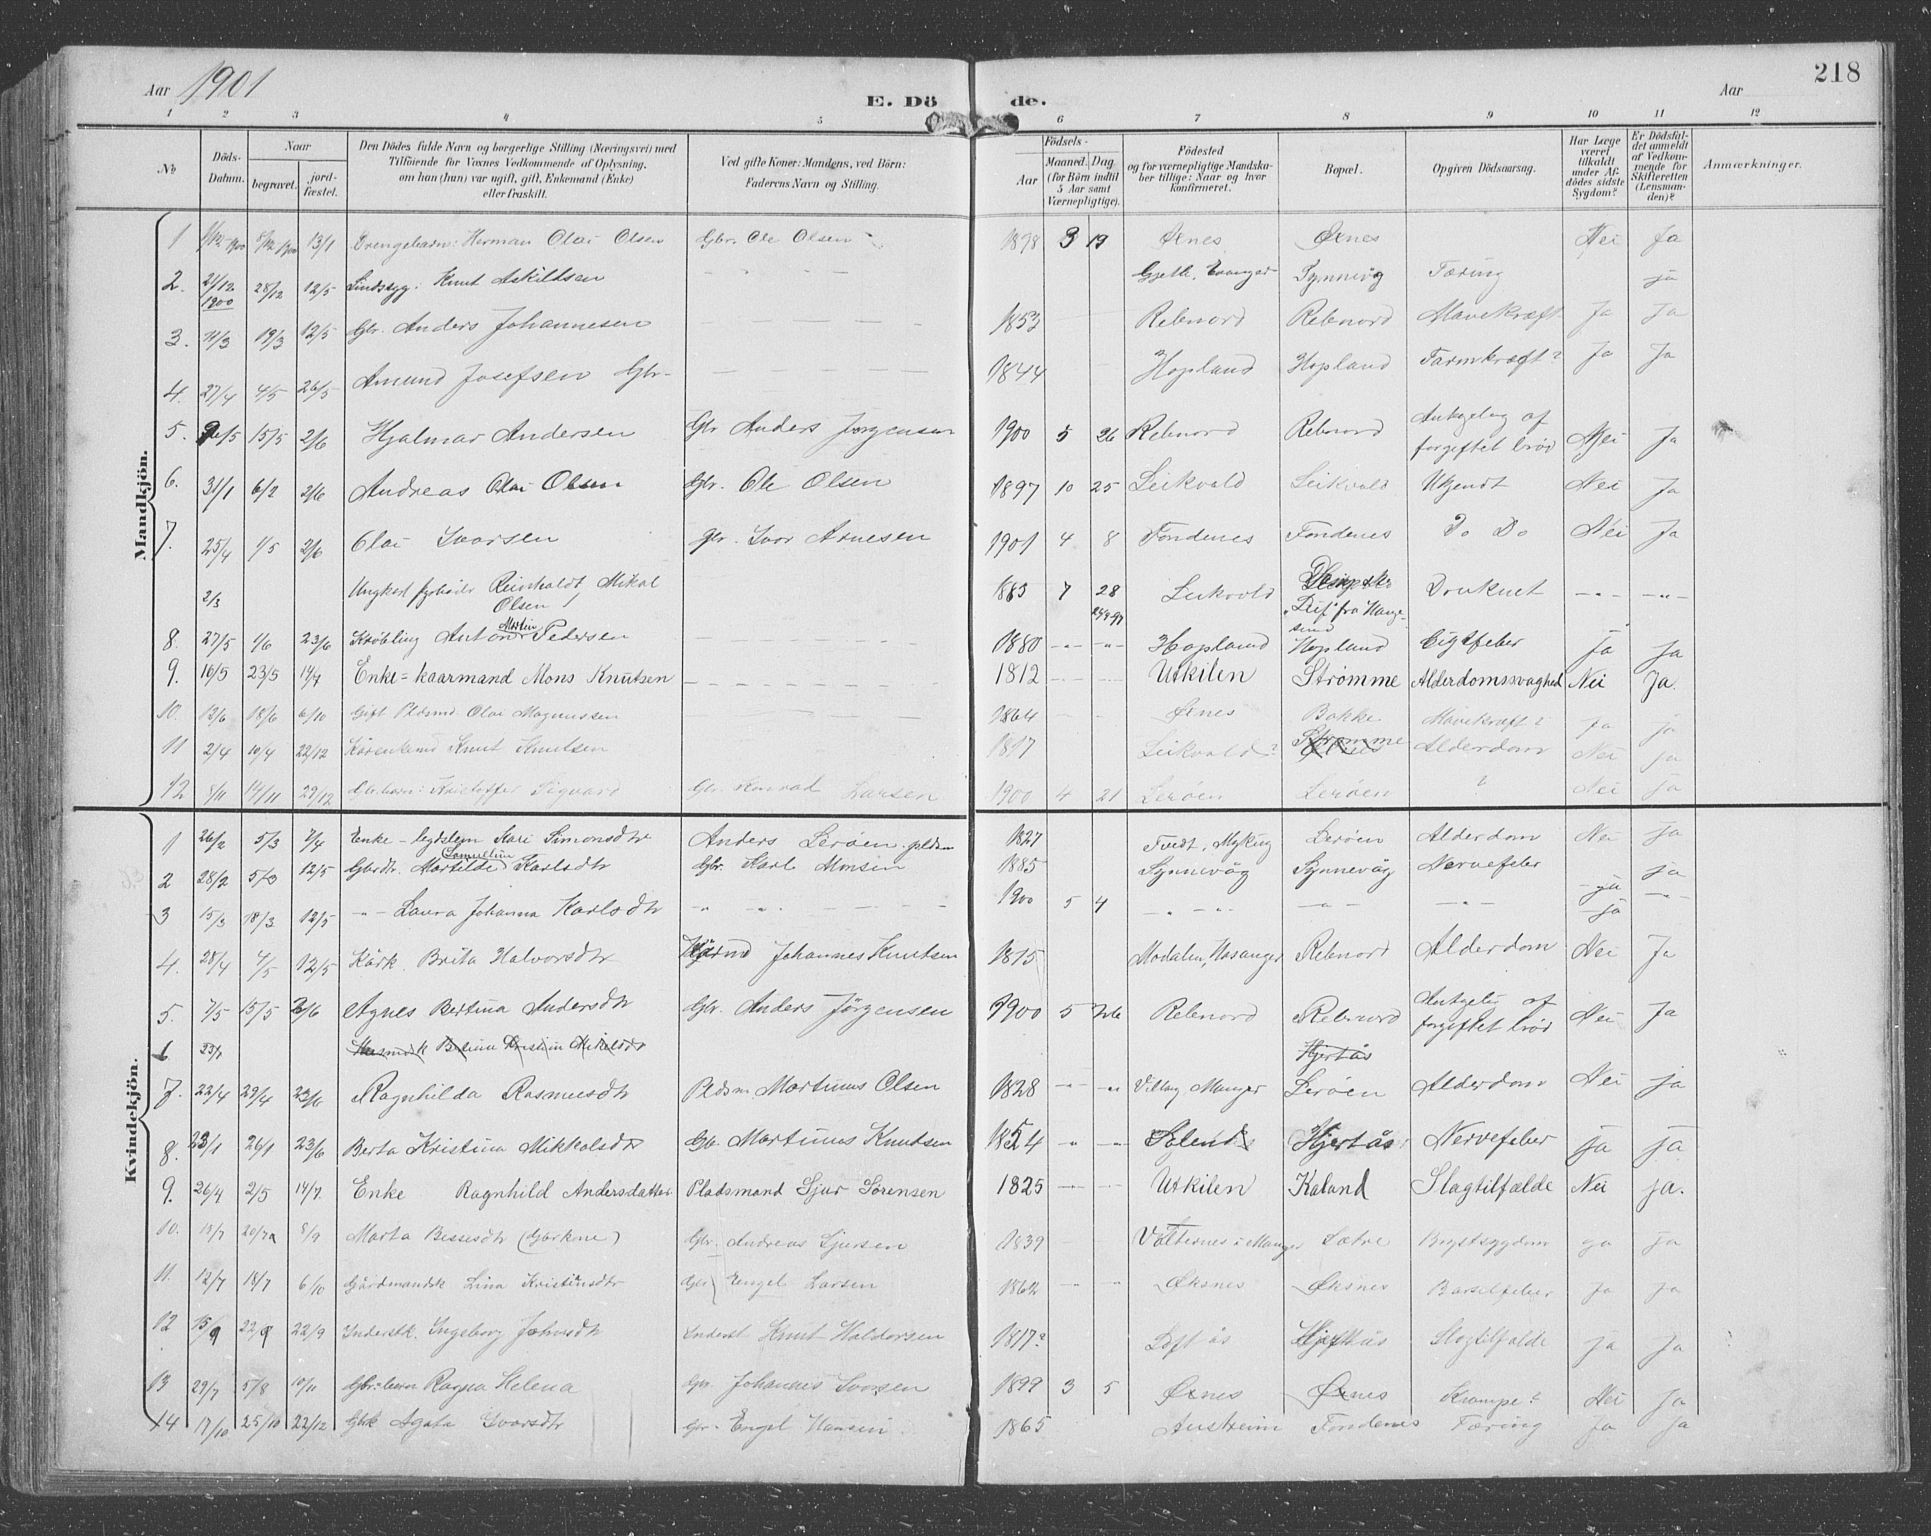 Aar 1901
E. Dö de.
Aar
218
1 2 3 4 5 6 7 8 9 10 11 12
No
Döds-Datum.
Naar
begravet.
jord-fæstet.
Den Dödes fulde Navn og borgerlige Stilling (Næringsvei) med
Tilföiende for Voxnes Vedkommende af Oplysning,
om han (hun) var ugift, gift, Enkemand (Enke)
eller fraskilt.
Ved gifte Koner: Mandens, ved Börn:
Faderens Navn og Stilling.
Födsels-
Aar
Maaned. Dag
(for Börn indtil
5 Aar samt
Værnepligtige).
Födested
og for værnepligtige Mandska-
ber tillige: Naar og hvor
konfirmeret.
Bopæl.
Opgiven Dödsaarsag.
Har Læge
været
tilkaldt
under Af-
dödes sidste
Sygdom?
Er Dödsfal-
det anmeldt
af Vedkom-
mende for
Skifteretten
(Lensman-
den)?
Anmærkninger.
Mandkjön.
1 13/1 Drengebarn: Herman Olai Olsen Gbr. Ole Olsen 1898 3 19 Öxnes Öxnes Nei Ja
2. 21/12 1900 28/12 12/5 Sindssyg. Knut Askildsen Gjetle, Evanger Synnevåg Tæring ja
3. 11/3 19/3 12/5 Gbr. Anders Johannesen 1853 Rebnord Rebnord Mavekræft Ja Ja
4. 27/4 4/5 26/5 Amund Josefsen Gbr. 1844 Hopland Hopland Tarmkræft? Ja Ja
5. 9/5 15/5 2/6 Hjalmar Andersen Gbr Anders Jørgensen 1900 5 26 Rebnord Rebnord Antagelig af
forgiftet brød Nei Ja
6. 31/1 6/2 2/6 Andreas Olai Olsen Gbr. Ole Olsen 1897 10 25 Leikvold Leikvold Ukjendt Nei Ja
7. 25/4 1/5 2/6 Olai Ivarsen gbr. Ivar Arnesen 1901 4 8 Fondenes Fondenes Do Do Nei Ja
2/3 Ungkarl fyrböder Reinholdt Mikal
Olsen 1883 7 28 Leikvold Dampsk.
"Leif" fra Hauge-
sund Druknet
8. 27/5 1/6 23/6 Krøbling Anton Martin Pedersen 1880 Hopland Hopland Gigtfeber Ja Ja
9. 16/5 23/5 14/7 Enke=kaarmand Mons Knutsen 1812 Utkilen Strømme Alderdomssvaghed Nei Ja.
10. 12/6 18/6 6/10 Gift Pldsmd. Olai Magnussen 1864 Öxnes Bakke Mavekræft? Ja ja
11 2/4 10/4 22/12 Kårenkmd Knut Knutsen 1817 Leikvold? Strømme Alderdom Nei ja
12 8/11 14/11 29/12 Gbr.barn: Kristoffer Sigvard Gbr Konrad Larsen 1900 4 21 Lerøen Lerøen ? Nei Ja
Kvindekjön.
1 26/2 5/3 2/4 Enke - legdslem Kari Simonsdtr Anders Lerøen pldsm 1827 Tvedt, Myking Lerøen Alderdom Nei Ja
2 28/2 5/3 12/5 Gbrdtr. Martilde Karlsdtr Gbr. Karl Monsen 1885 Synnevåg Synnevåg Nervefeber ja ja
3 15/3 18/3 12/5 -"- Laura Johanna Karlsdtr 1900 5 4 ja
4. 28/4 4/5 12/5 Kårk. Brita Halvorsdtr Kårmd Johannes Knutsen 1815 Modalen, Hosanger Rebnord Alderdom Nei Ja
5. 7/5 15/5 2/6 Agnes Bertina Andersdtr Gbr. Anders Jörgensen 1900 5 26 Rebnord Rebnord Antagelig af
forgiftet brød Nei Ja
6. 23/1 Husmdsk Betina Kristine Mikalsdtr Hjertås
7. 22/4 29/4 23/6 Ragnhilda Rasmusdtr Pldsm. Martinus Olsen 1828 Manger Lerøen Alderdom Nei ja
8. 23/1 26/1 23/6 Berta Kristina Mikkalsdtr Gbr. Martinus Knudsen 1854 Solend Hjertås Nervefeber ja ja
9. 26/4 2/5 14/7 Enke Ragnhild Andersdatter Pladsmand Sjur Sørensen 1825 Utkilen Kaland Slagtilfælde Nei ja.
10. 13/7 20/7 8/9 Marta Bessesdtr (Gårkone) Gbr. Andreas Sjursen 1839 Vatternes i Manger Sætre Brystsygdom ja Ja
11. 12/7 18/7 6/10 Gårdmandsk Lina Kristiansdtr Gbr Engel Larsen 1862 Øksnes Øksnes Barselfeber Ja Ja
12 15/9 22/9 22/9 Inderstk. Ingeborg Johnsdtr Inderst Knut Haldorsen 1817? Loftås Hjertås Slagtilfælde ja Ja
13 29/7 5/8 10/11 Gbr.barn Ragna Helena Gbr. Johannes Ivarsen 1899 3 5 Öxnes Öxnes Krampe? Nei Ja
14 17/10 25/10 22/12 Gbk Agata Ivarsdtr Gbr. Engel Hansen 1865 Austreim Fondenes Tæring Ja Ja